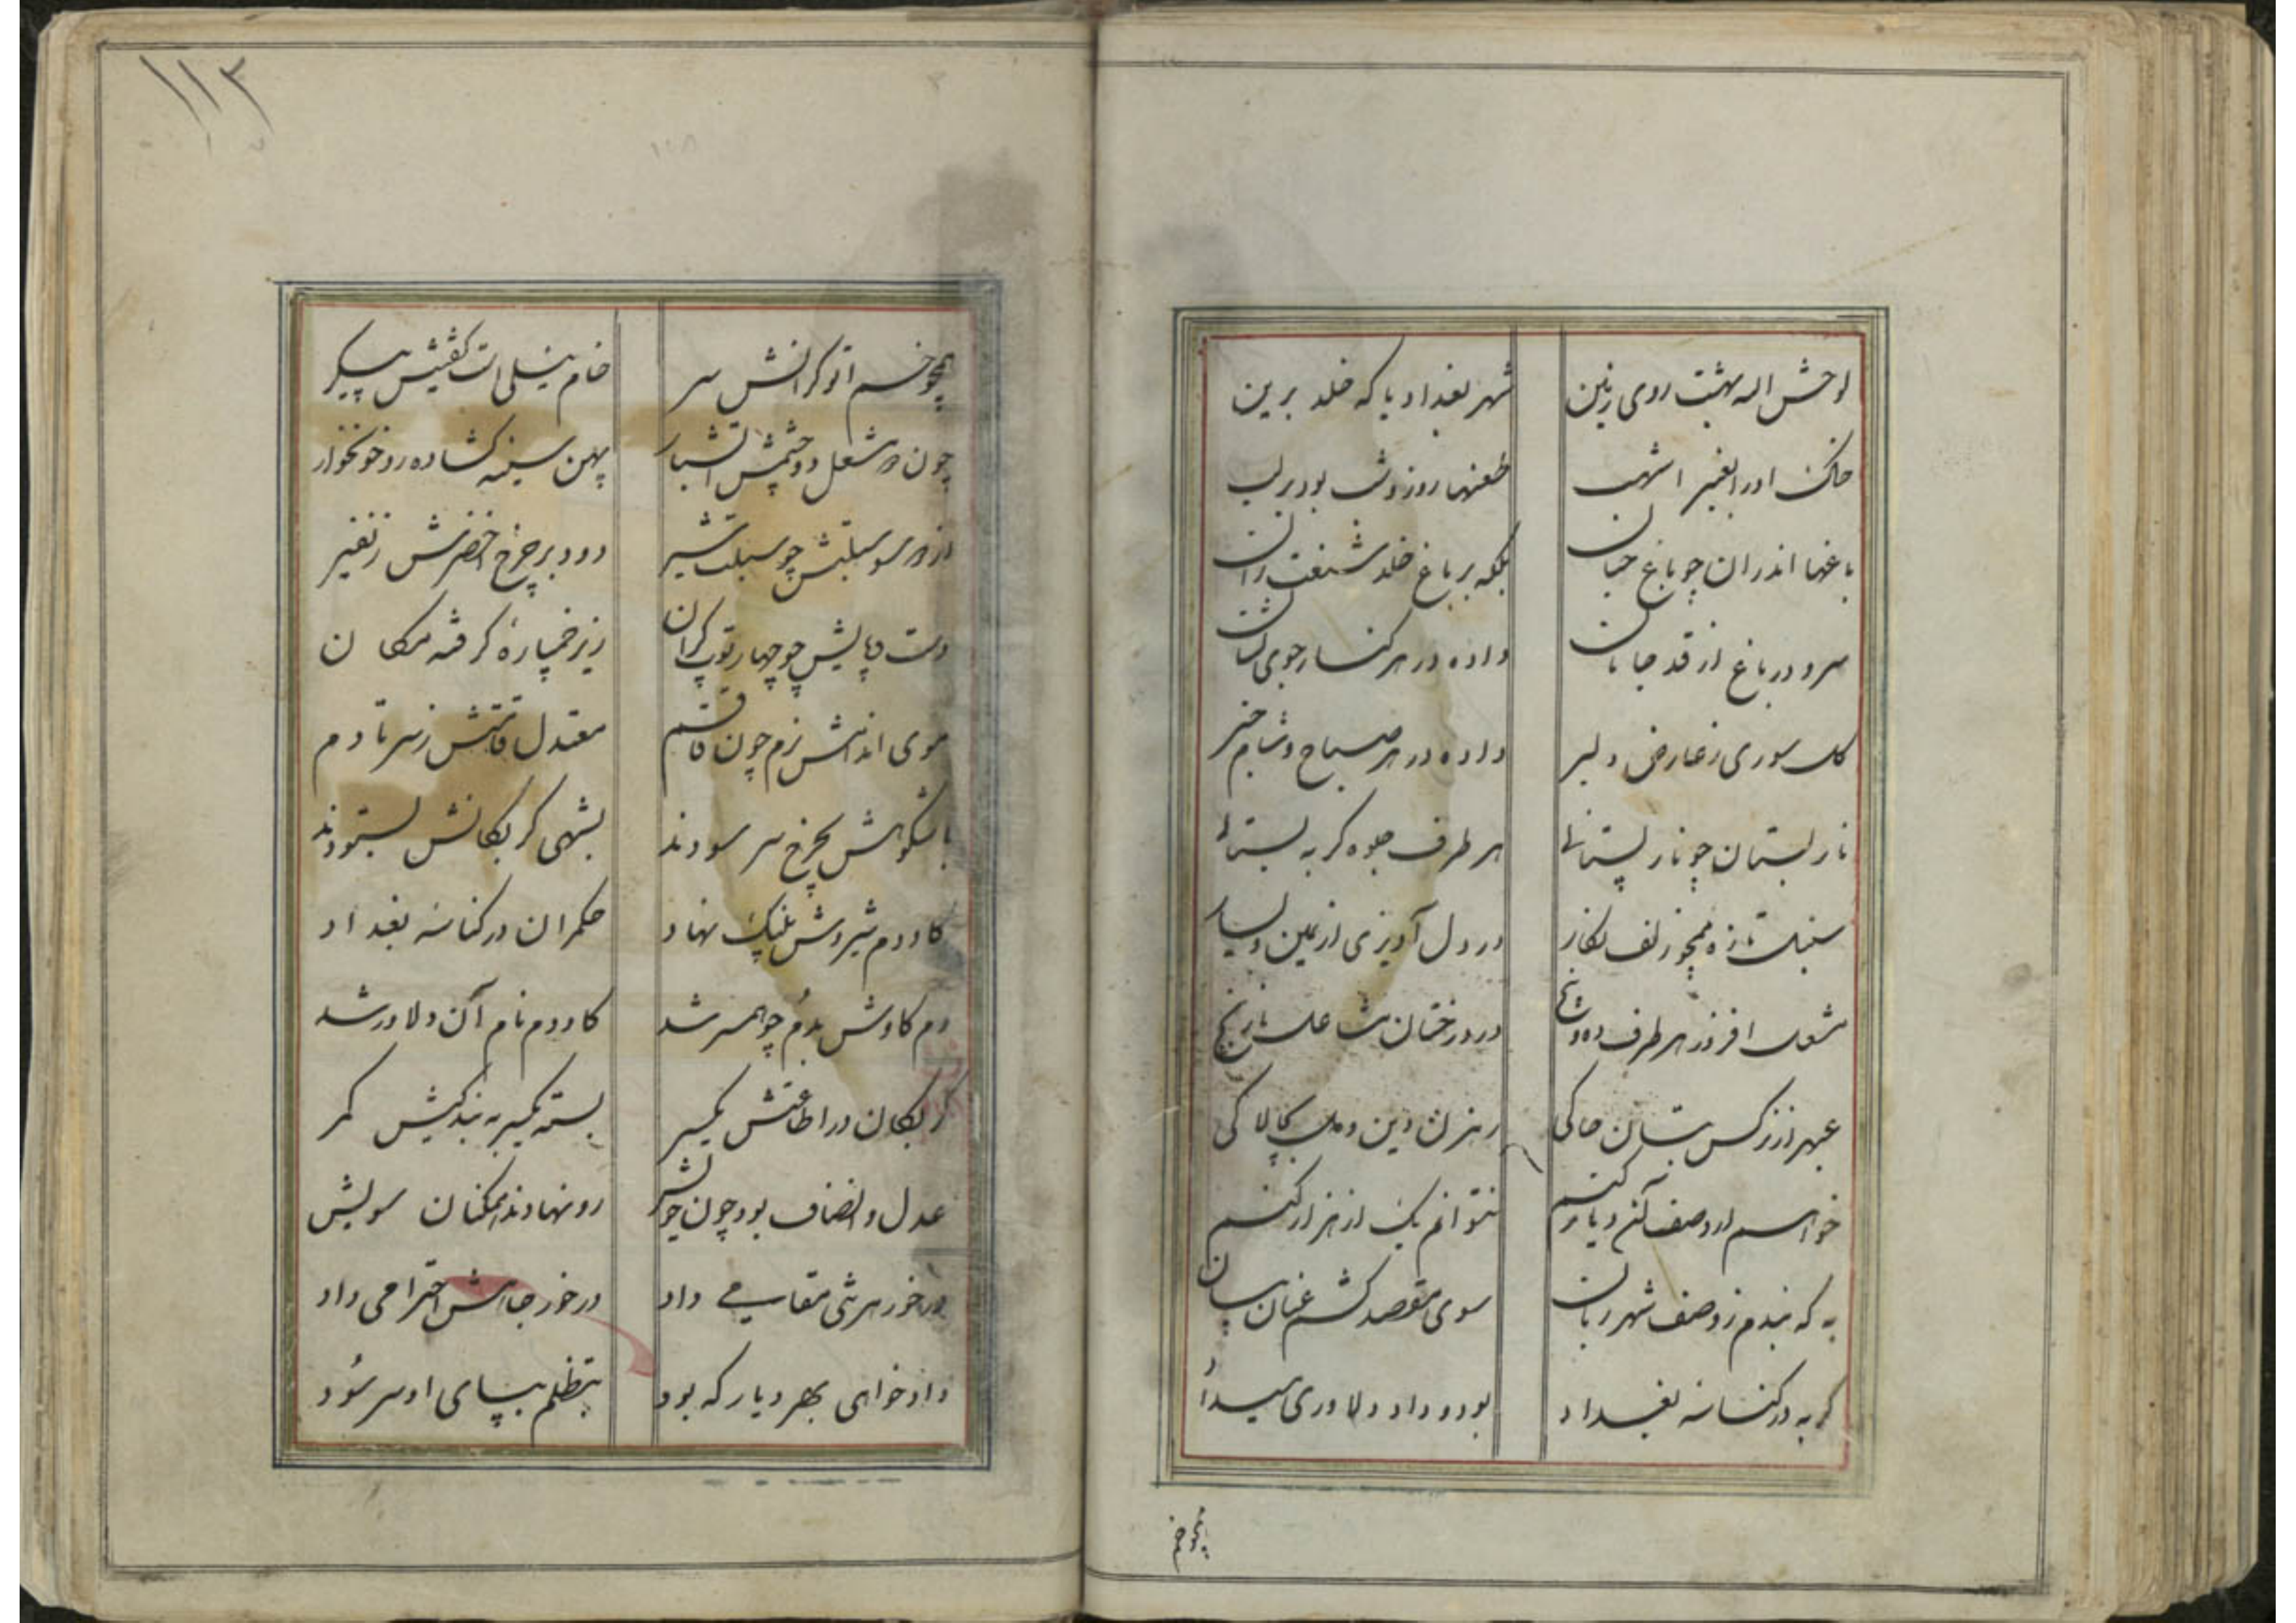 لوحش اله بهشت روی زمین شهر بغداد یا که خلد برین
خاک او را بعنبر اشهب طعنها روز و شب بود بر لب
باغها اندران چو باغ جنان بلکه بر باغ خلد
سرو در باغ از قد جانان داده در هر کنار جوی نشان
کل سوری ز عارض دلبر داده در هر صباح و شام خبر
نار بستان چو نار پستانها هر طرف جلوه کر به بستانها
سنبل تازه همچو زلف نکار در دل آویزی از یمین و یسار
مشعل افروز هر طرف در درختان مشاعل نارنج
عبهر از نرکس بتان حاکی رهزن دین و دل
خواهم ار وصف آن دیار کنم نتوانم یک از هزار کنم
به که بندم ز وصف شهر زبان سوی مقصد کشم عنان بیان
کربه در کناسه بغداد بود و داد دلاوری میداد
همچو خم
۱۱۳
همچو خم
چون دو مشعل دو چشمش آتشبار پهن سینه کشاده رو خونخوار
از دو سو سبلتش چو سبلت شیر دود بر چرخ اخضرش ز نفیر
دست و پایش چو چهار توپ کران زیر خمپارهٔ کرفته مکان
موی اندامش نرم چون قاقم معتدل قامتش ز سر تا دم
با شکوهش بچرخ سر سودند بشهی کربکانش بستودند
کاودم شیروش پلنک نهاد حکمران در کناسه بغداد
دم کاوش بدُم چو همسر شد کاودم نام آن دلاور شد
کربکان در اطاعتش یکسر بسته یکسر به بندکیش کمر
عدل و انصاف بود چون خویش رو نهادند همکنان سویش
در خور هر شی مقامی داد در خور جاهش احترامی داد
دادخواهی بهر دیار که بود بتظلم بپای او سر سُود